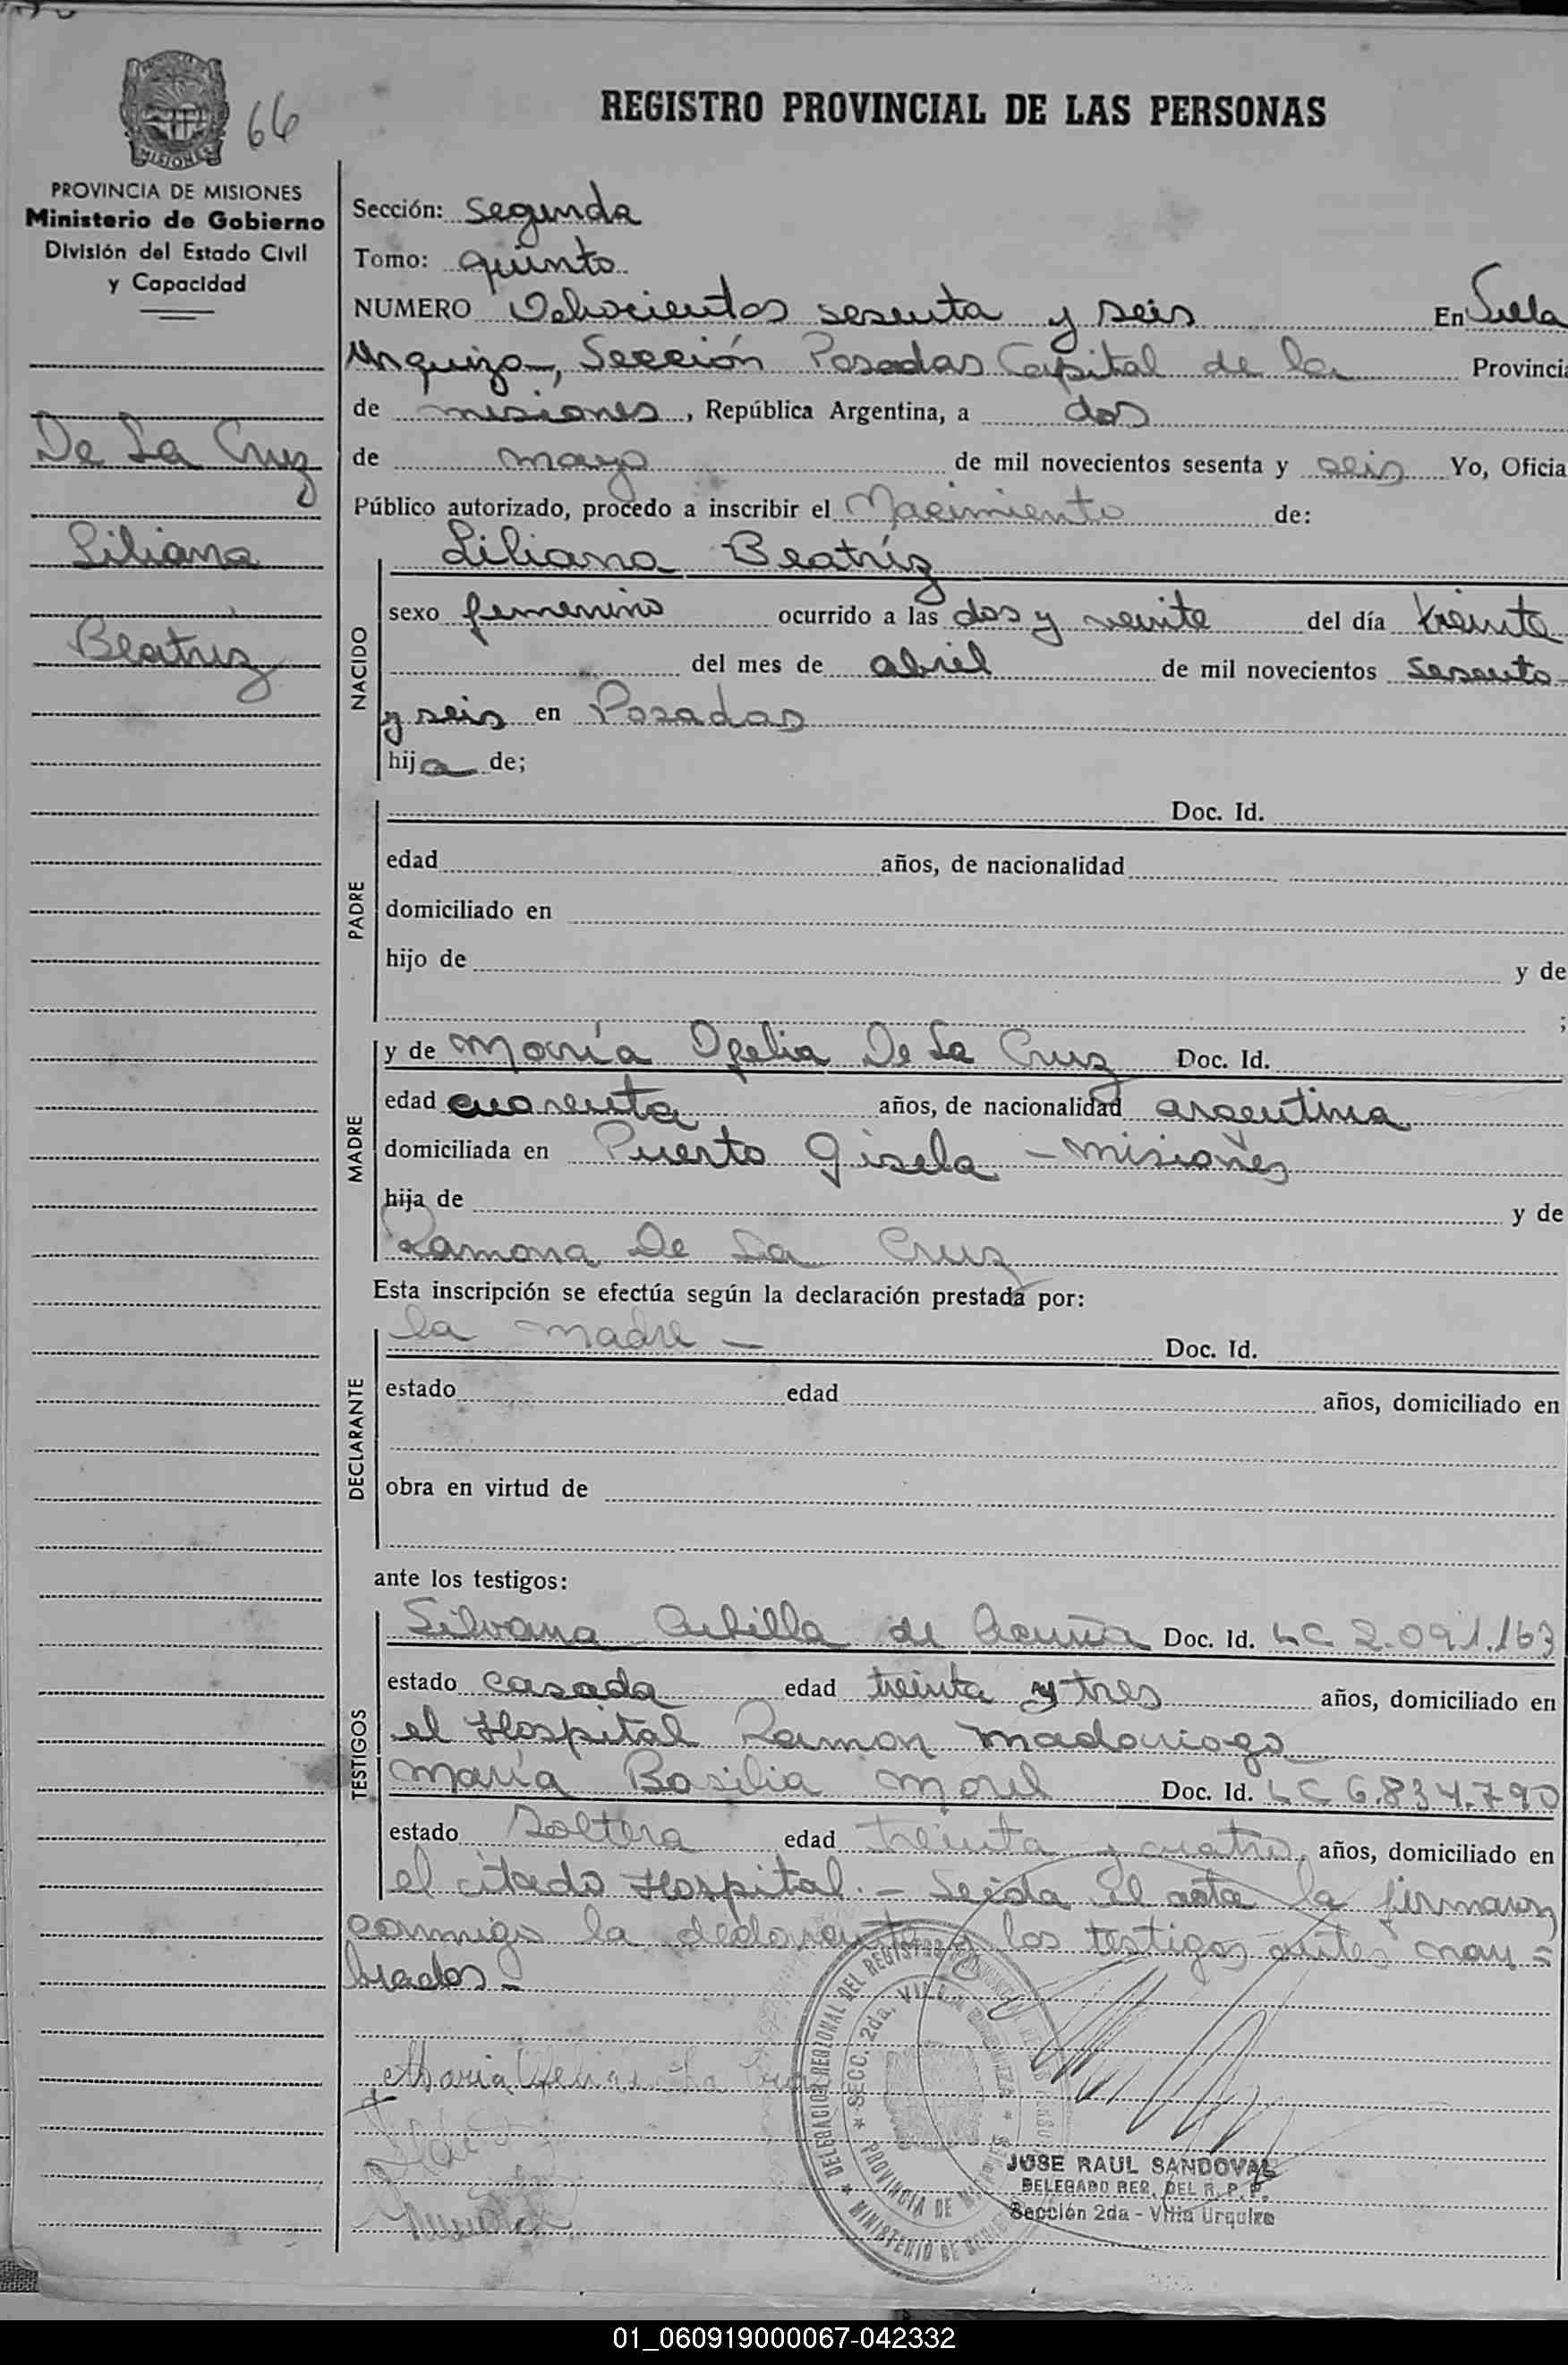 66
REGISTRO PROVINCIAL DE LAS PERSONAS
MISIONES
PROVINCIA DE MISIONES
Ministerio de Gobierno
División del Estado Civil
y Capacidad
De La Cruz
Liliana
Beatriz
Sección: Segunda
Tomo: quinto
NUMERO Ochocientos sesenta y seis En Villa
Urquiza, Sección Posadas Capital de la Provincia
de misiones, República Argentina, a dos
de mayo de mil novecientos sesenta y seis Yo, Oficia
Público autorizado, procedo a inscribir el Nacimiento de:
NACIDO
Liliana Beatríz
sexo femenino ocurrido a las dos y veinte del día treinta
del mes de abril de mil novecientos sesenta
y seis en Posadas
hija de;
PADRE
Doc. Id.
edad años, de nacionalidad
domiciliado en
hijo de y de
;
MADRE
y de María Ofelia De La Cruz Doc. Id.
edad cuarenta años, de nacionalidad argentina
domiciliada en Puerto Gisela - misiones
hija de y de
Ramona De La Cruz
Esta inscripción se efectúa según la declaración prestada por:
DECLARANTE
la madre - Doc. Id.
estado edad años, domiciliado en
obra en virtud de
ante los testigos:
TESTIGOS
Silvana de Acuña Doc. Id. LC 2.091.163
estado casada edad treinta y tres años, domiciliado en
el Hospital Ramon Madariaga
María Basilia Morel Doc. Id. LC 6.834.790
estado Soltera edad treinta y cuatro años, domiciliado en
el citado Hospital. - Leída el acta la firmaron
conmigo la declarante y los testigos antes nom=
brados -
María
DELEGACION REGIONAL DEL REGISTRO
SECC. 2da, VILLA URQUIZA
PROVINCIA DE MISIONES
MINISTERIO DE
JOSE RAUL SANDOVAL
DELEGADO REG. DEL R. P. P.
Sección 2da - Villa Urquiza
01_060919000067-042332